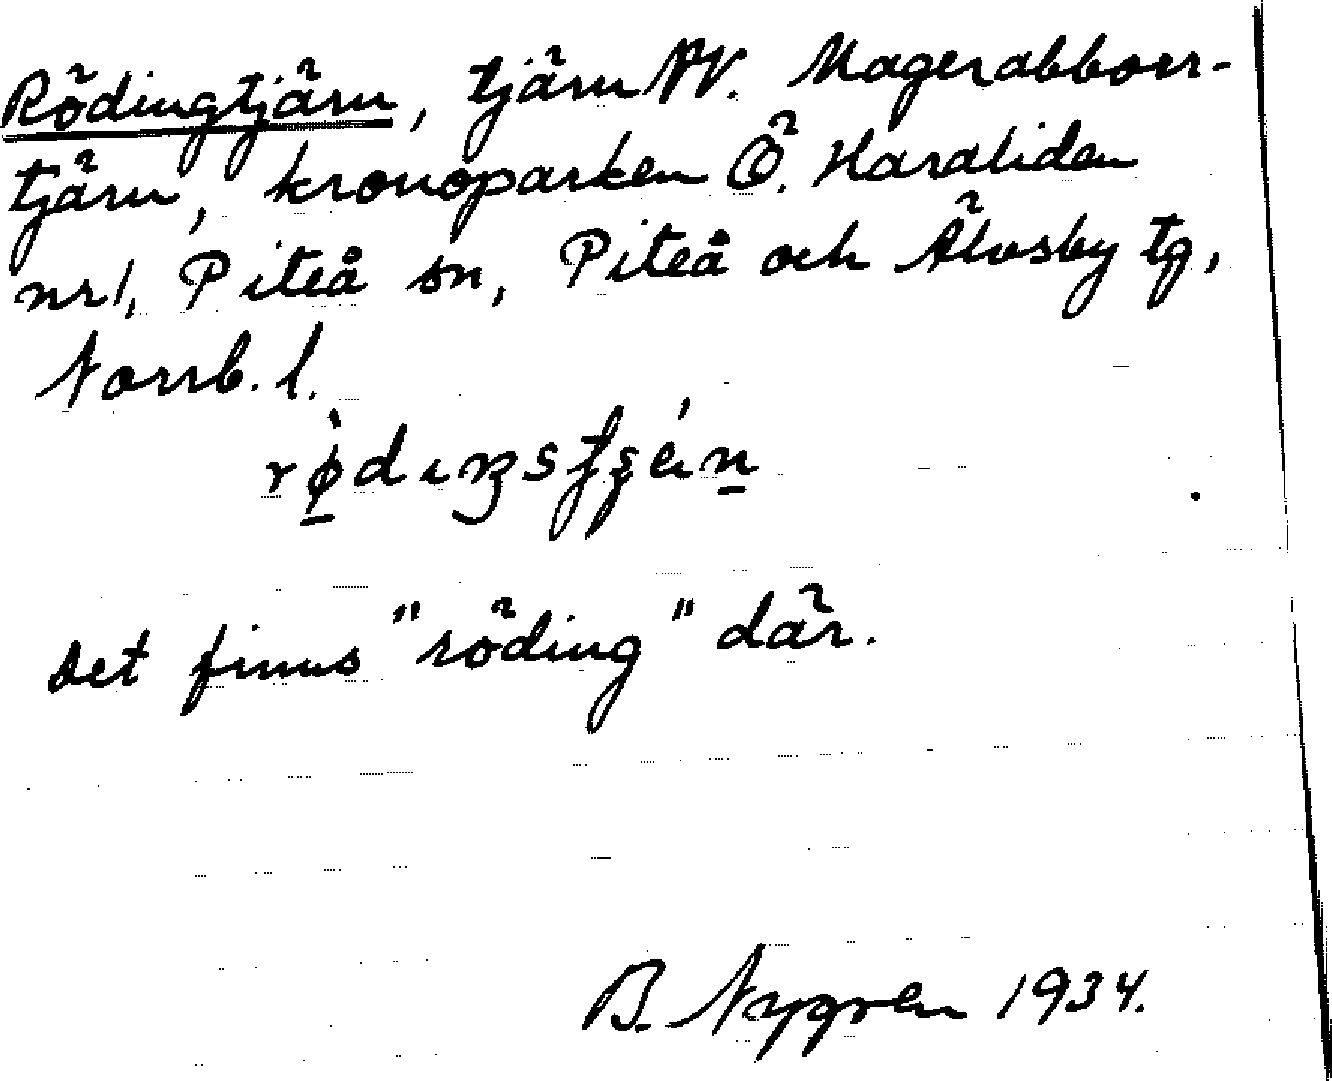 Rödingtjärn, tjärn NV. Magerabborr-
tjärn, kronoparken Ö. Haraliden
nr 1, Piteå sn, Piteå och Älvsby tg,
Norrb. l.
Det finns "röding" där.
B. Nygren 1934.